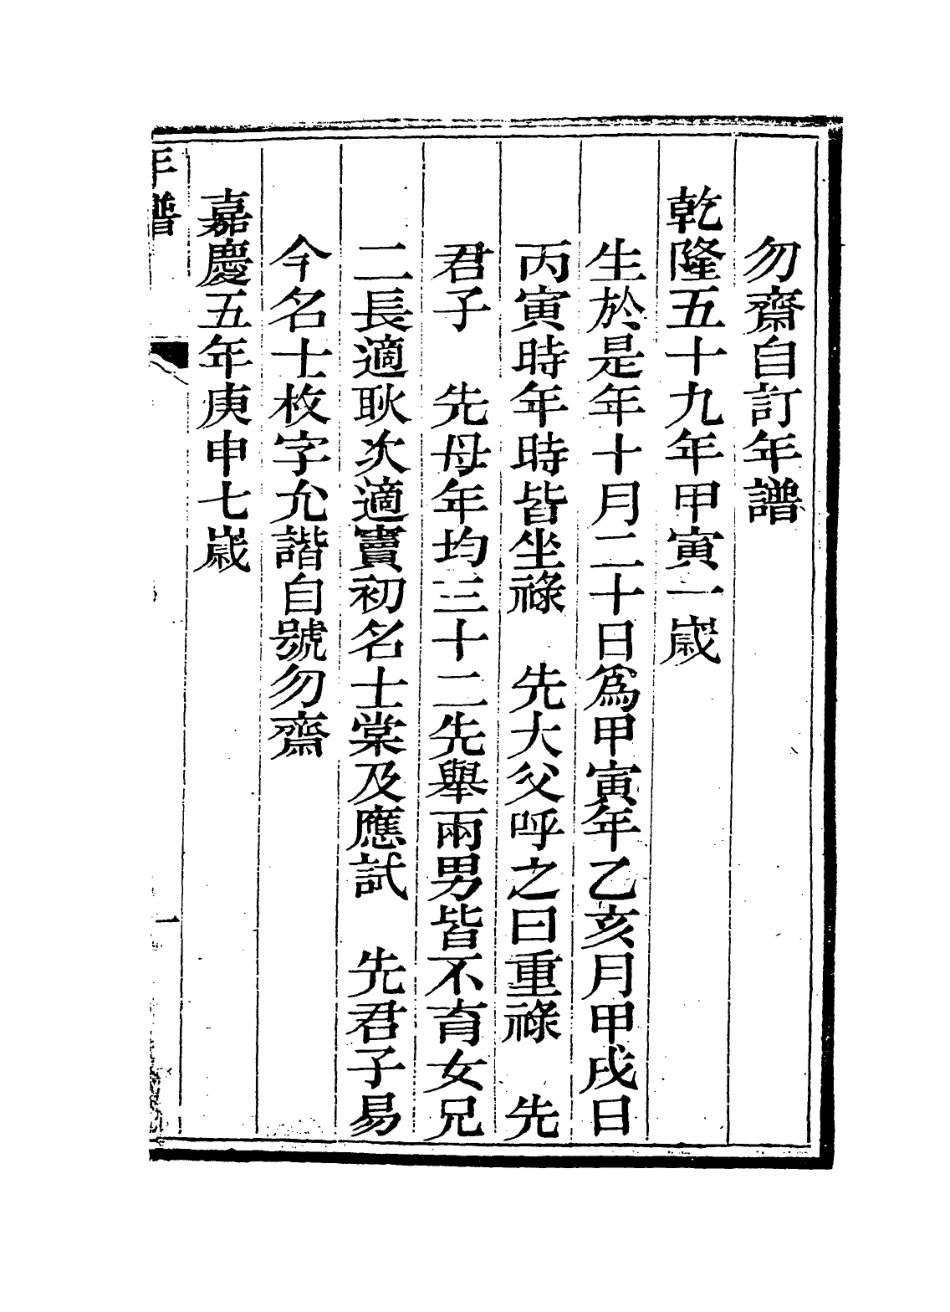 勿齋自訂年譜
乾隆五十九年甲寅一歲
生於是年十月二十日爲甲寅年乙亥月甲戌日
丙寅時年時皆坐祿　先大父呼之曰重祿　先
君子　先母年均三十二先舉兩男皆不育女兄
二長適耿次適竇初名士棠及應試　先君子易
今名士枚字允諧自號勿齋
嘉慶五年庚申七歲
年譜
一